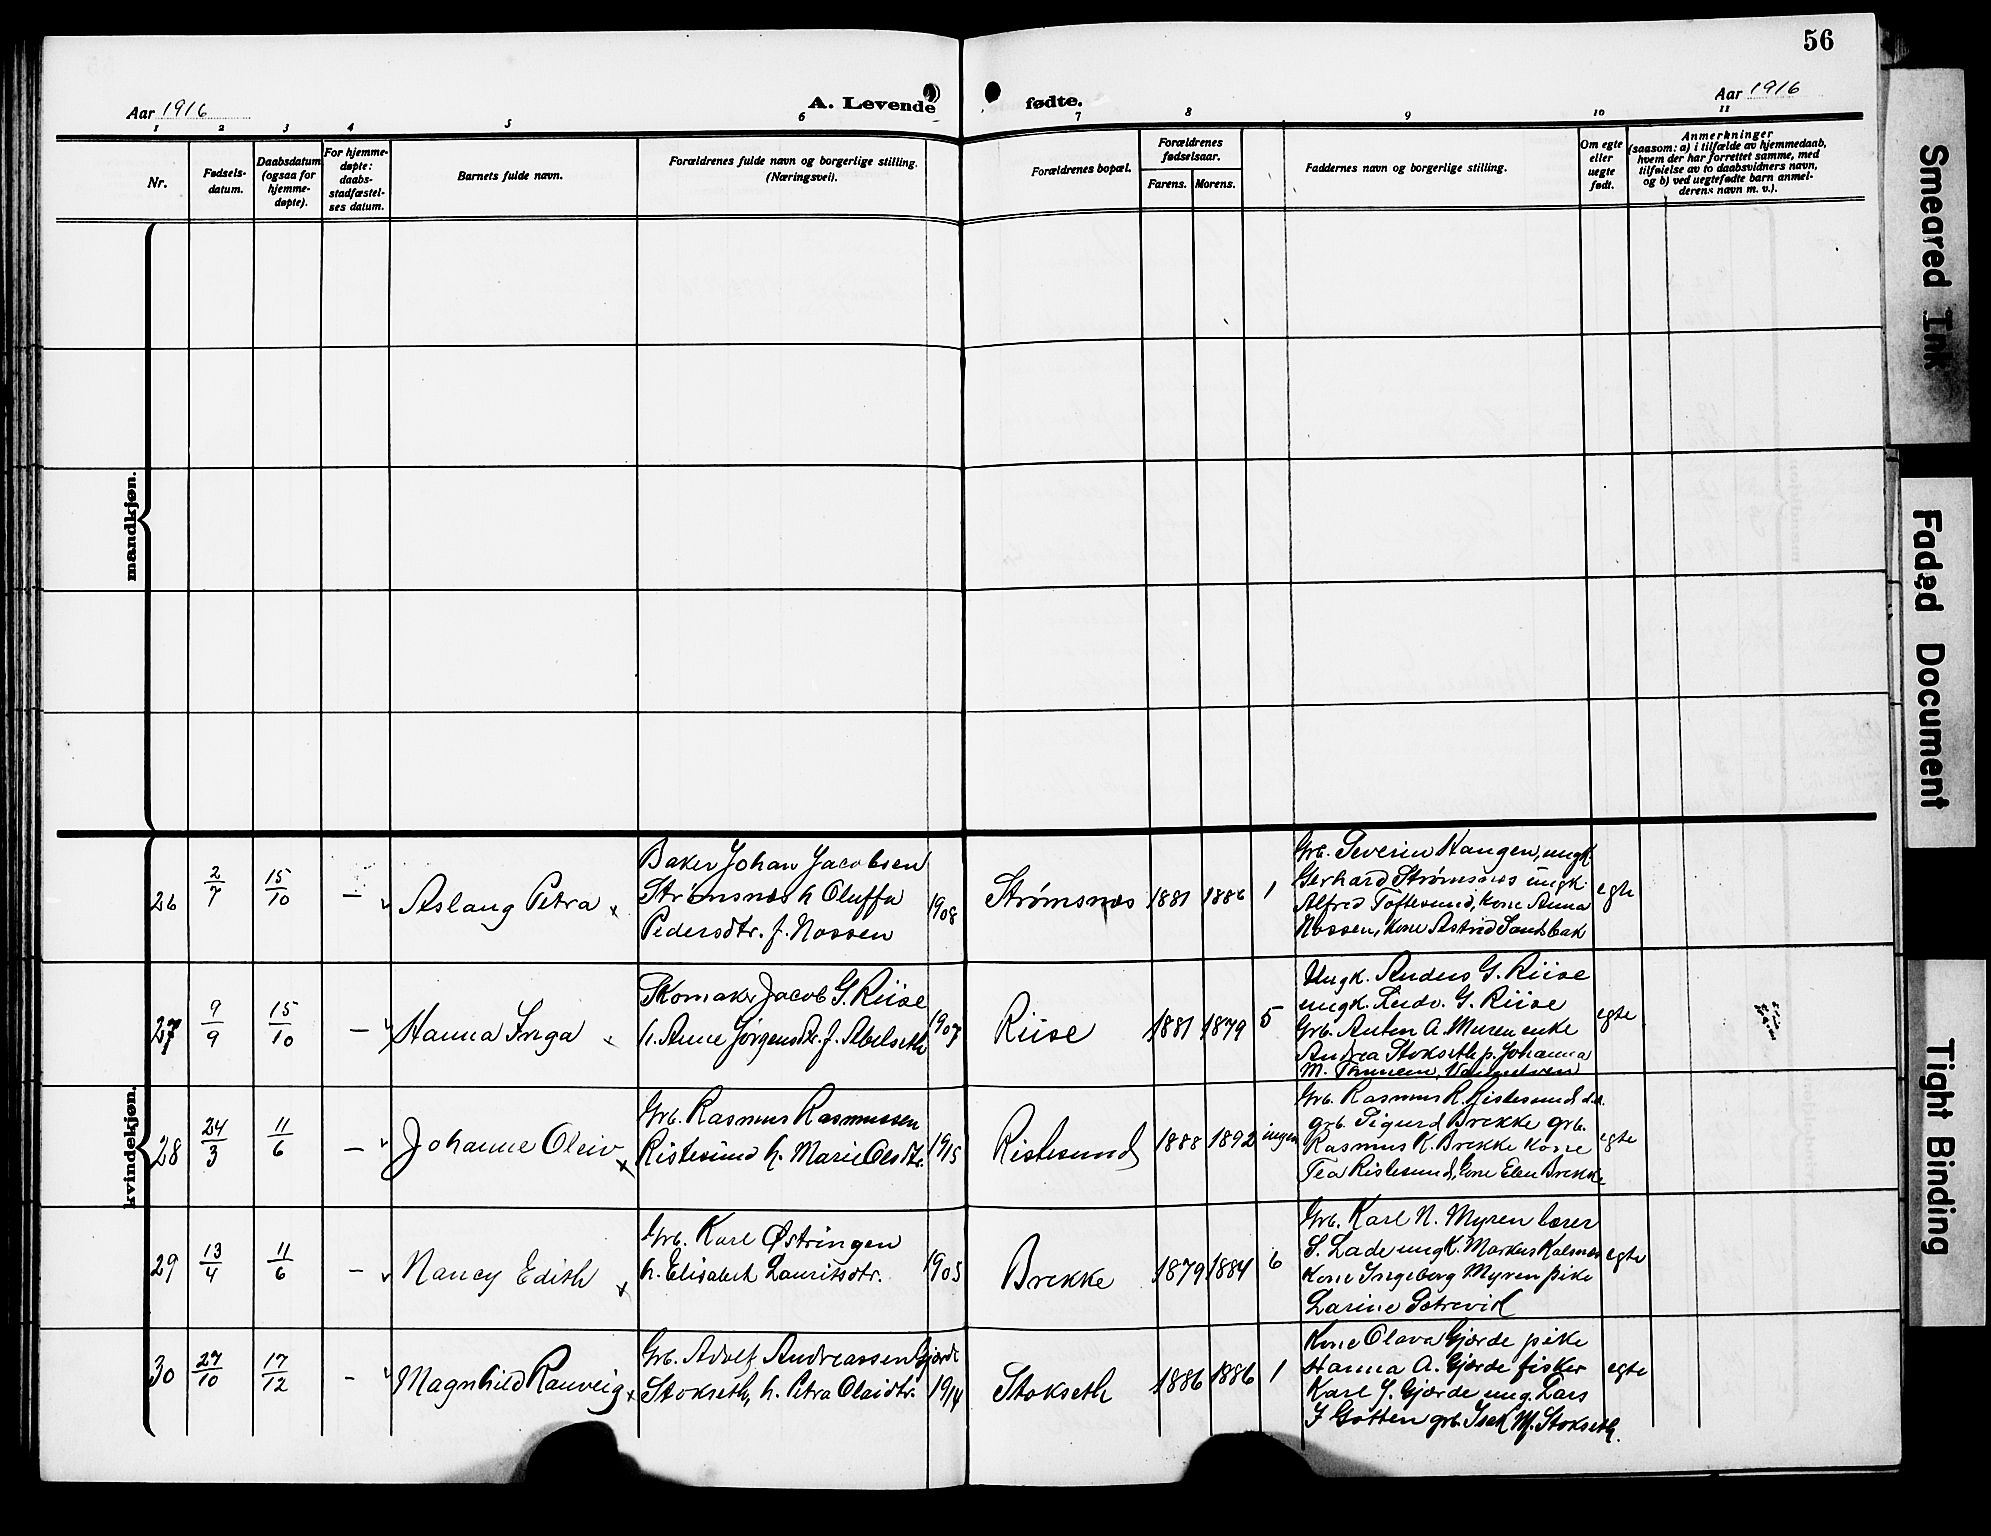 56
Aar 1916
A. Levende fødte.
Aar 1916
1 2 3 4 5 6 7 8 9 10 11
Nr.
Fødsels-
datum.
Daabsdatum
(ogsaa for
hjemme-
døpte).
For hjemme-
døpte:
daabs-
stadfæstel-
ses datum.
Barnets fulde navn.
Forældrenes fulde navn og borgerlige stilling.
(Næringsvei).
Forældrenes bopæl.
Forældrenes
fødselsaar.
Farens. Morens.
Faddernes navn og borgerlige stilling.
Om egte
eller
uegte
født.
Anmerkninger
(saasom: a) i tilfælde av hjemmedaab,
hvem der har forrettet samme, med
tilføielse av to daabsvidners navn,
og b) ved uegtefødte barn anmel-
derens navn m. v.).
mandkjøn.
kvindekjøn.
26
2/7
15/10
—
Aslaug Petra
Baker Johan Jacobsen
Strømsnæs h Oluffa
Pedersdtr. f. Nossen
1908
Strømsnæs
1881
1886
1
Grb. Severin Haugen, ungk
Gerhard Strømsnes ungk.
Alfred Toftesund, Kone Anna
Nossen, Kone Astrid Sandbak
egte
27
9/9
15/10
—
Hanna Inga
Skomaker Jacob G. Riise
h. Anne Jørgensdtr. f. Abelseth
1907
Riise
1881
1879
5
Ungk. Anders G. Riise
ungk. Ludv. G. Riise
Grb. Anton A. Myren enke
Andrea Stokseth p. Johanna
M.
egte
28
24/3
11/6
—
Johanne Oleiv
Grb. Rasmus Rasmussen
Ristesund h. Marie Olsdtr.
1915
Ristesund
1888
1892
ingen
Grb. Rasmus R. Ristesund
grb. Sigurd Brekke grb.
Rasmus K. Brekke Kone
Tea Ristesund, Kone Elen Brekke
egte
29
13/4
11/6
—
Nancy Edith
Grb. Karl Østringen
h. Elisabet Lauritsdtr.
1905
Brekke
1879
1884
6
Grb. Karl N. Myren lærer
S. Lade ungk. Markus Kalsnes
Kone Ingeborg Myren pike
Larine Sætrevik
egte
30
27/10
17/12
-
Magnhild Rauveig
Grb. Adolf Andreassen Gjørde
Stokseth, h. Petra Olaidtr.
1914
Stokseth
1886
1886
1
Kone Olava Gjørde pike
Hanna A. Gjørde fisker
Karl J. Gjørde ung. Lars
J Gotten grb. Isak M. Stokseth.
egte
Smeared Ink
Faded Document
Tight Binding